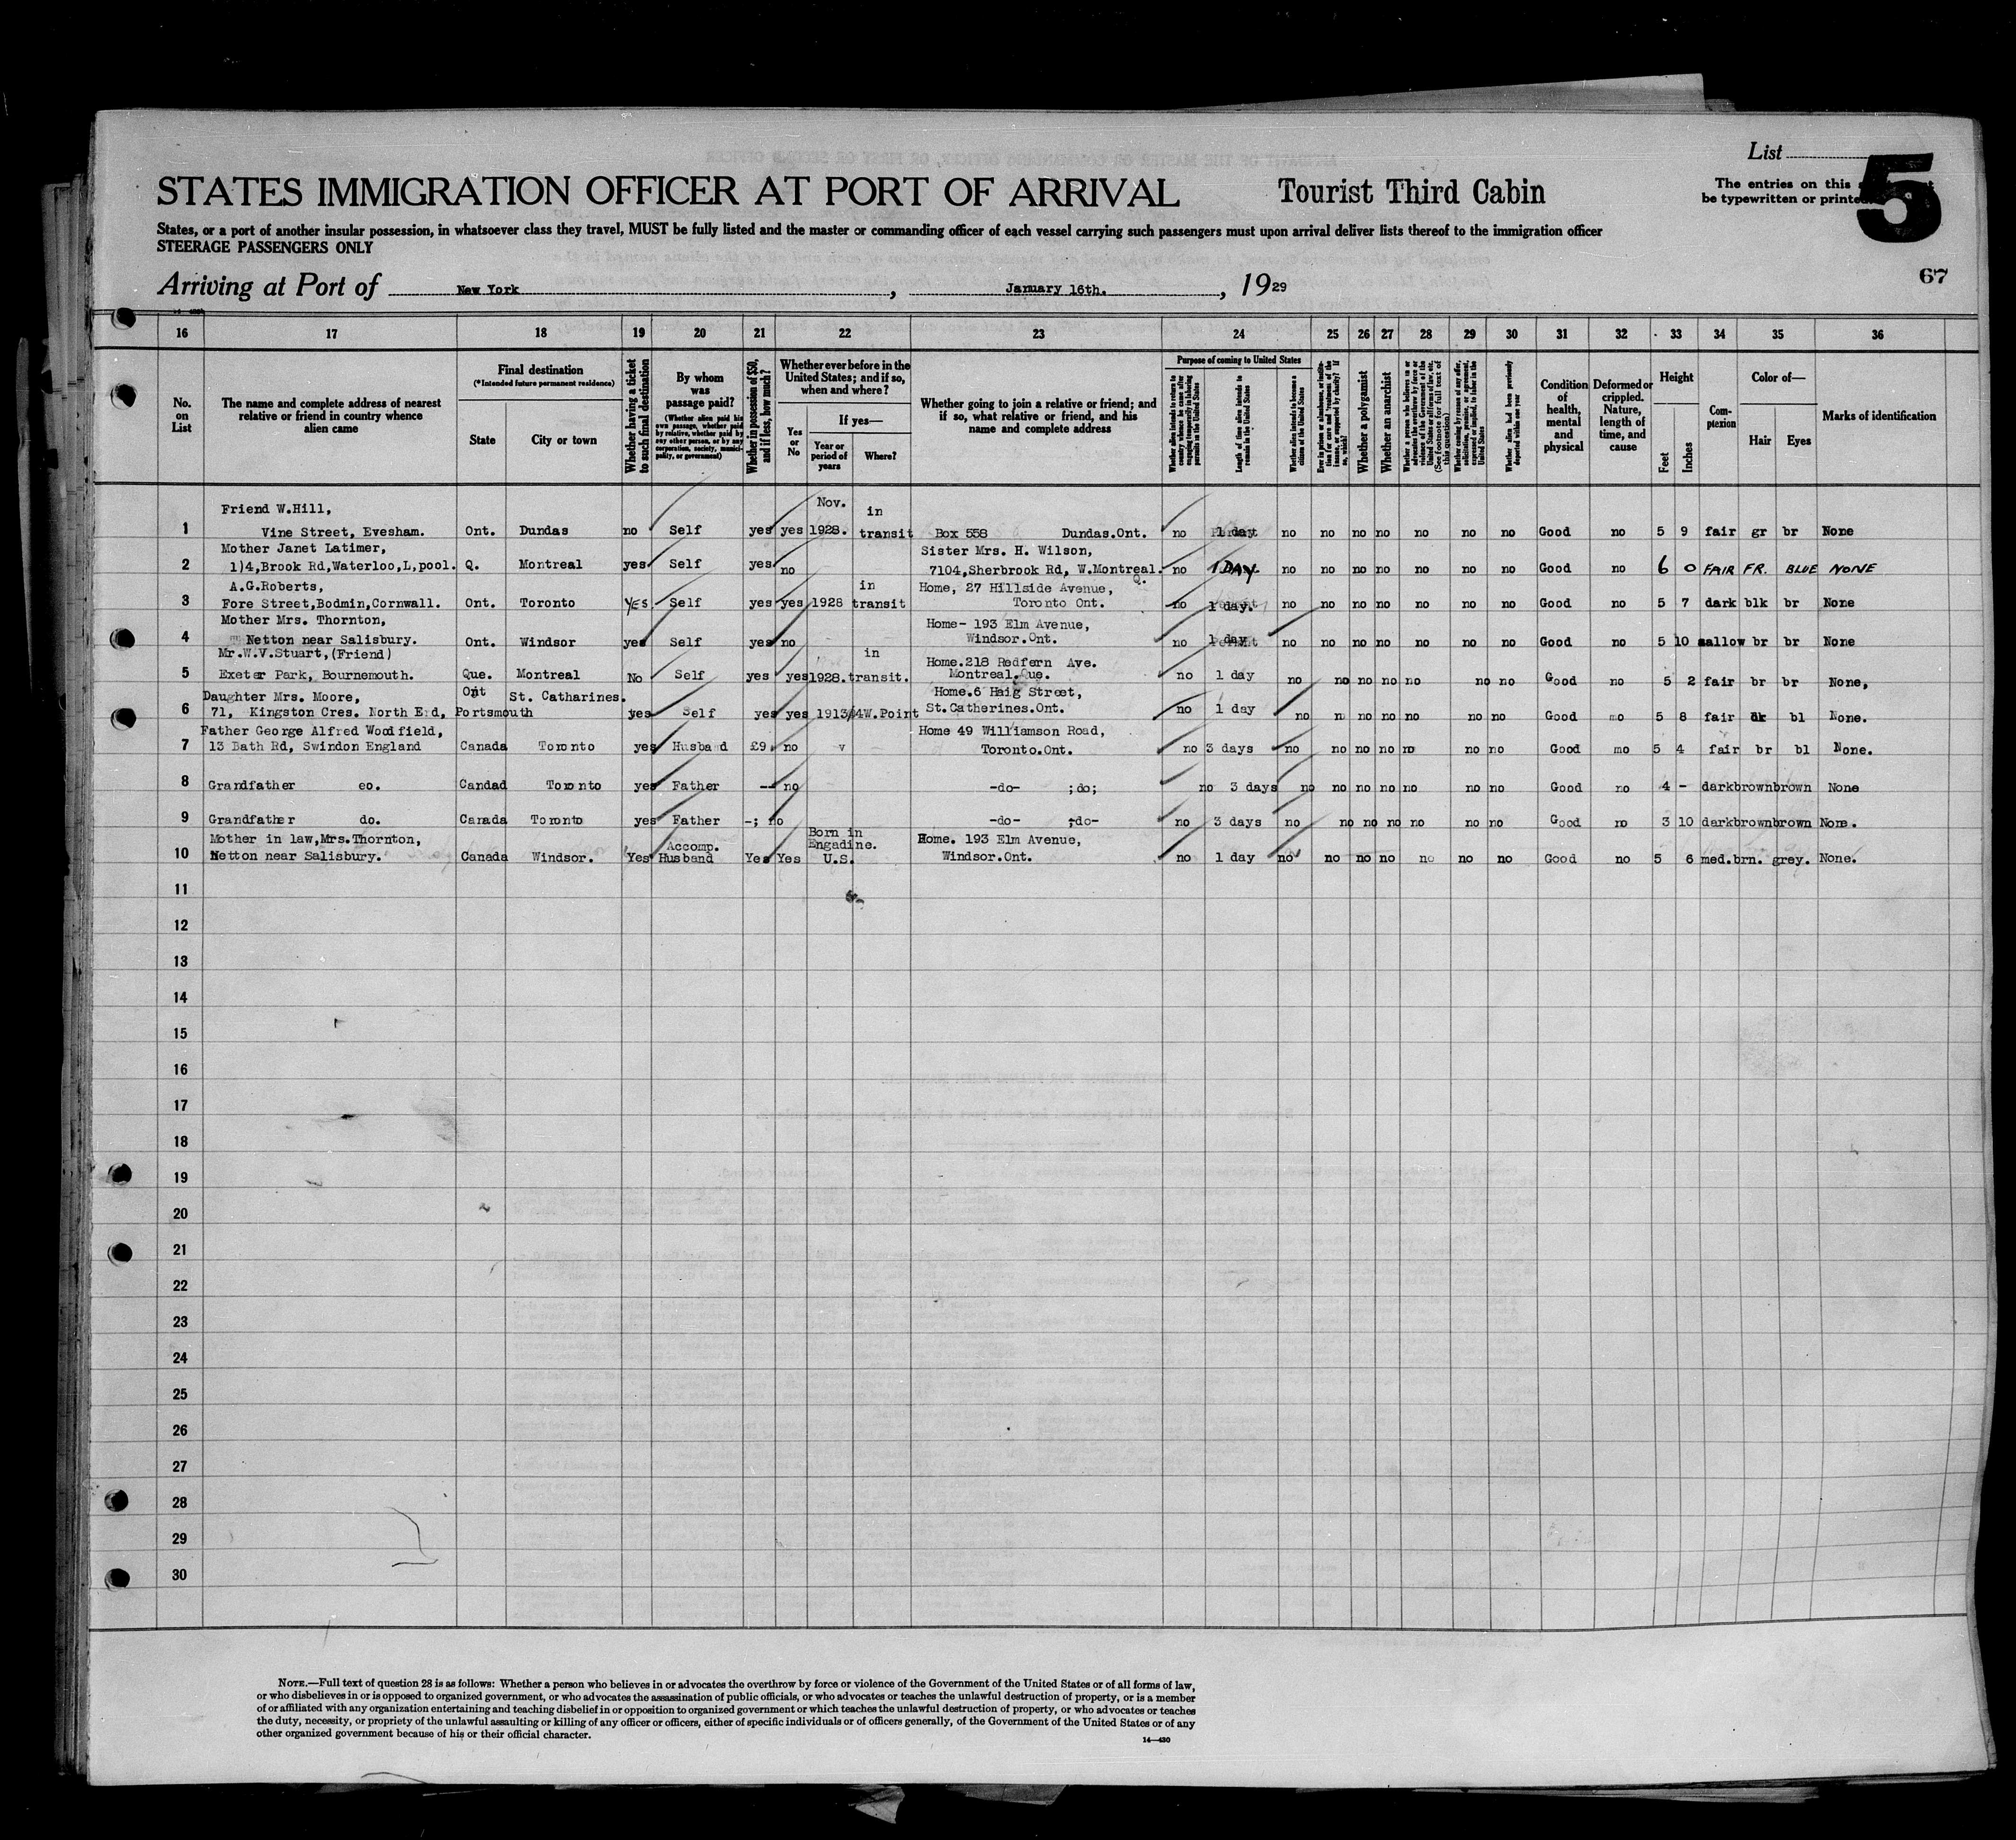 List
5
STATES IMMIGRATION OFFICER AT PORT OF ARRIVAL
Tourist Third Cabin
The entries on this
be typewritten or printed
States, or a port of another insular possession, in whatsoever class they travel, MUST be fully listed and the master or commanding officer of each vessel carrying such passengers must upon arrival deliver lists thereof to the immigration officer
STEERAGE PASSENGERS ONLY
67
Arriving at Port of New York, January 16th., 1929
16 17 18 19 20 21 22 23 24 25 26 27 28 29 30 31 32 33 34 35 36
No. on List
The name and complete address of nearest relative or friend in country whence alien came
Final destination
(*Intended future permanent residence)
State
City or town
Whether having a ticket to such final destination
By whom was passage paid?
(Whether alien paid his own passage, whether paid by relative, whether paid by any other person, or by any corporation, society, municipality, or government)
Whether in possession of $50, and if less, how much?
Whether ever before in the United States; and if so, when and where?
Yes or No
If yes—
Year or period of years
Where?
Whether going to join a relative or friend; and if so, what relative or friend, and his name and complete address
Purpose of coming to United States
Whether alien intends to return to country whence he came after engaging temporarily in laboring pursuits in the United States
Length of time alien intends to remain in the United States
Whether alien intends to become a citizen of the United States
Ever in prison or almshouse, or institution for care and treatment of the insane, or supported by charity? If so, which?
Whether a polygamist
Whether an anarchist
Whether a person who believes in or advocates the overthrow by force or violence of the Government of the United States or all forms of law, etc. (See footnote for full text of this question)
Whether coming by reason of any offer, solicitation, promise, or agreement, expressed or implied, to labor in the United States
Whether alien had been previously deported within one year
Condition of health, mental and physical
Deformed or crippled. Nature, length of time, and cause
Height
Feet
Inches
Complexion
Color of—
Hair
Eyes
Marks of identification
Friend W.Hill, Nov. in
1 Vine Street, Evesham. Ont. Dundas no Self yes yes 1928. transit Box 558 Dundas.Ont. no 1 day no no no no no no no Good no 5 9 fair gr br None
Mother Janet Latimer, Sister Mrs. H. Wilson,
2 1)4,Brook Rd,Waterloo,L,pool. Q. Montreal yes Self yes no 7104,Sherbrook Rd, W.Montreal. Q. no 1 DAY no no no no no no no Good no 6 0 FAIR FR. BLUE NONE
A.G.Roberts, in Home, 27 Hillside Avenue,
3 Fore Street,Bodmin,Cornwall. Ont. Toronto YES Self yes yes 1928 transit Toronto Ont. no 1 day. no no no no no no no Good no 5 7 dark blk br None
Mother Mrs. Thornton, Home- 193 Elm Avenue,
4 Netton near Salisbury. Ont. Windsor yes Self yes no Windsor.Ont. no 1 day no no no no no no no Good no 5 10 sallow br br None
Mr.W.V.Stuart,(Friend) in Home.218 Redfern Ave.
5 Exeter Park, Bournemouth. Que. Montreal No Self yes yes 1928. transit. Montreal.Que. no 1 day no no no no no no no Good no 5 2 fair br br None,
Daughter Mrs. Moore, Ont St. Catharines. Home.6 Haig Street,
6 71, Kingston Cres. North End, Portsmouth yes Self yes yes 1913/14 W.Point St.Catherines.Ont. no 1 day no no no no no no no Good no 5 8 fair dk bl None.
Father George Alfred Woodfield, Home 49 Williamson Road,
7 13 Bath Rd, Swindon England Canada Toronto yes Husband £9. no v Toronto.Ont. no 3 days no no no no no no no Good mo 5 4 fair br bl None.
8 Grandfather eo. Candad Toronto yes Father -- no -do- ;do; no 3 days no no no no no no no Good no 4 - dark brown brown None
9 Grandfather do. Canada Toronto yes Father -; no -do- ;do- no 3 days no no no no no no no Good no 3 10 dark brown brown None.
Mother in law,Mrs.Thornton, Accomp. Born in Engadine. Home. 193 Elm Avenue,
10 Netton near Salisbury. Canada Windsor. Yes Husband Yes Yes U.S. Windsor.Ont. no 1 day no no no no no no no Good no 5 6 med. brn. grey. None.
11
12
13
14
15
16
17
18
19
20
21
22
23
24
25
26
27
28
29
30
NOTE.—Full text of question 28 is as follows: Whether a person who believes in or advocates the overthrow by force or violence of the Government of the United States or of all forms of law,
or who disbelieves in or is opposed to organized government, or who advocates the assassination of public officials, or who advocates or teaches the unlawful destruction of property, or is a member
of or affiliated with any organization entertaining and teaching disbelief in or opposition to organized government or which teaches the unlawful destruction of property, or who advocates or teaches
the duty, necessity, or propriety of the unlawful assaulting or killing of any officer or officers, either of specific individuals or of officers generally, of the Government of the United States or of any
other organized government because of his or their official character.
14—430